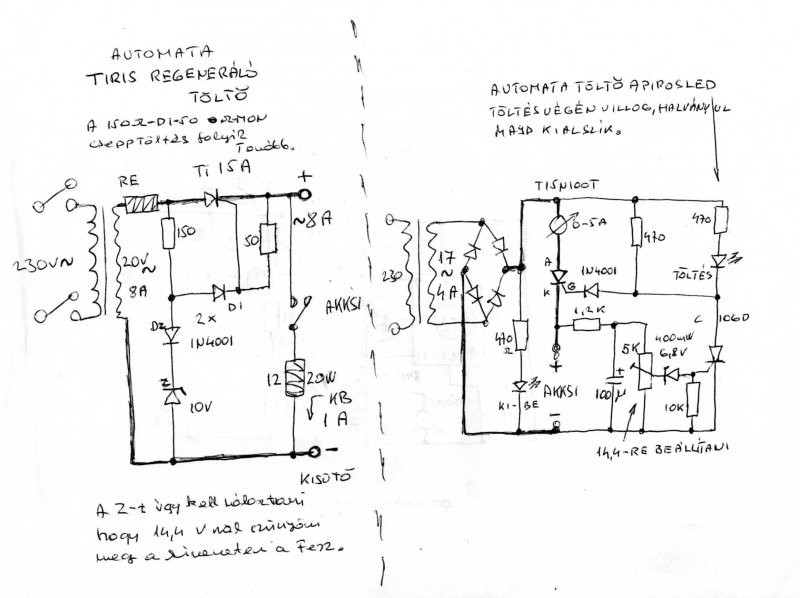 AUTOMATA
TIRIS REGENERÁLÓ
TÖLTŐ
A 150Ω-DI-50
csepptöltés folyik
tovább.
Ti 15A
RE
+
~8A
150
50
230V~
20V~
8A
2x
Di
AKKSI
DZ
1N4001
Z
10V
12
20W
KB
1A
-
KISÜTŐ
A Z-t úgy kell
hogy 14,4 V nál
meg a a Fesz.
AUTOMATA TÖLTŐ A PIROSLED
TÖLTÉS VÉGÉN VILLOG, HALVÁNYUL
MAJD KIALSZIK.
T15N100T
0-5A
470
470
230
17
~
4A
A
K
G
1N4001
TÖLTÉS
C
106D
1,2K
470
Ω
KI-BE
+
AKKSI
-
+
100µ
5K
400mW
6,8V
10K
14,4-RE BEÁLLÍTANI